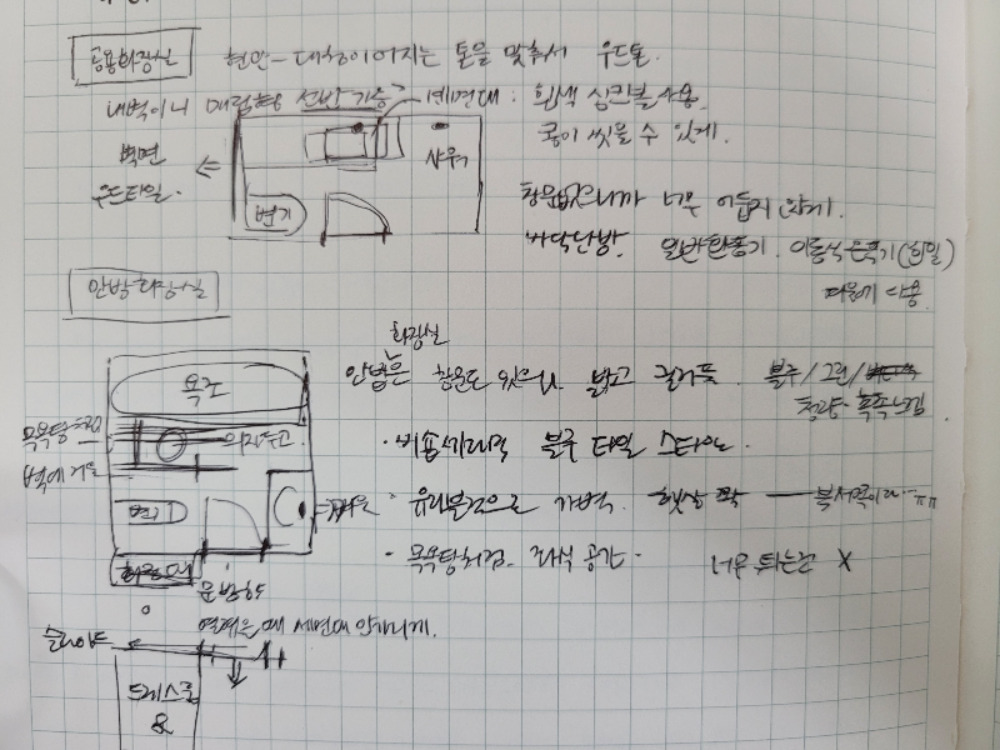 공용화장실
현관-대청이어지는 톤을 맞춰서 우드톤.
내벽이니 매립형 선반 가능? 세면대 : 흰색 싱크볼 사용.
콩이 씻을 수 있게.
벽면
우드타일.
샤워기
변기
창문없으니까 너무 어둡지 않게.
바닥난방. 일반환풍기. 이동식 온풍기(휘일)
안방화장실
화장실
안방은 창문도 있으니 밝고 블루/그린/
욕조
목욕탕처럼
의자두고
벽에 거울
블루 타일 스타일.
변기
거울
· 유리블럭으로 가벽. 햇살 팍 — 북서쪽이라..ㅠㅠ
· 목욕탕처럼. 좌식 공간. 너무 튀는건 X
문방향
열려있을 때 세면대 안가리게.
슬라이드
드레스룸
&